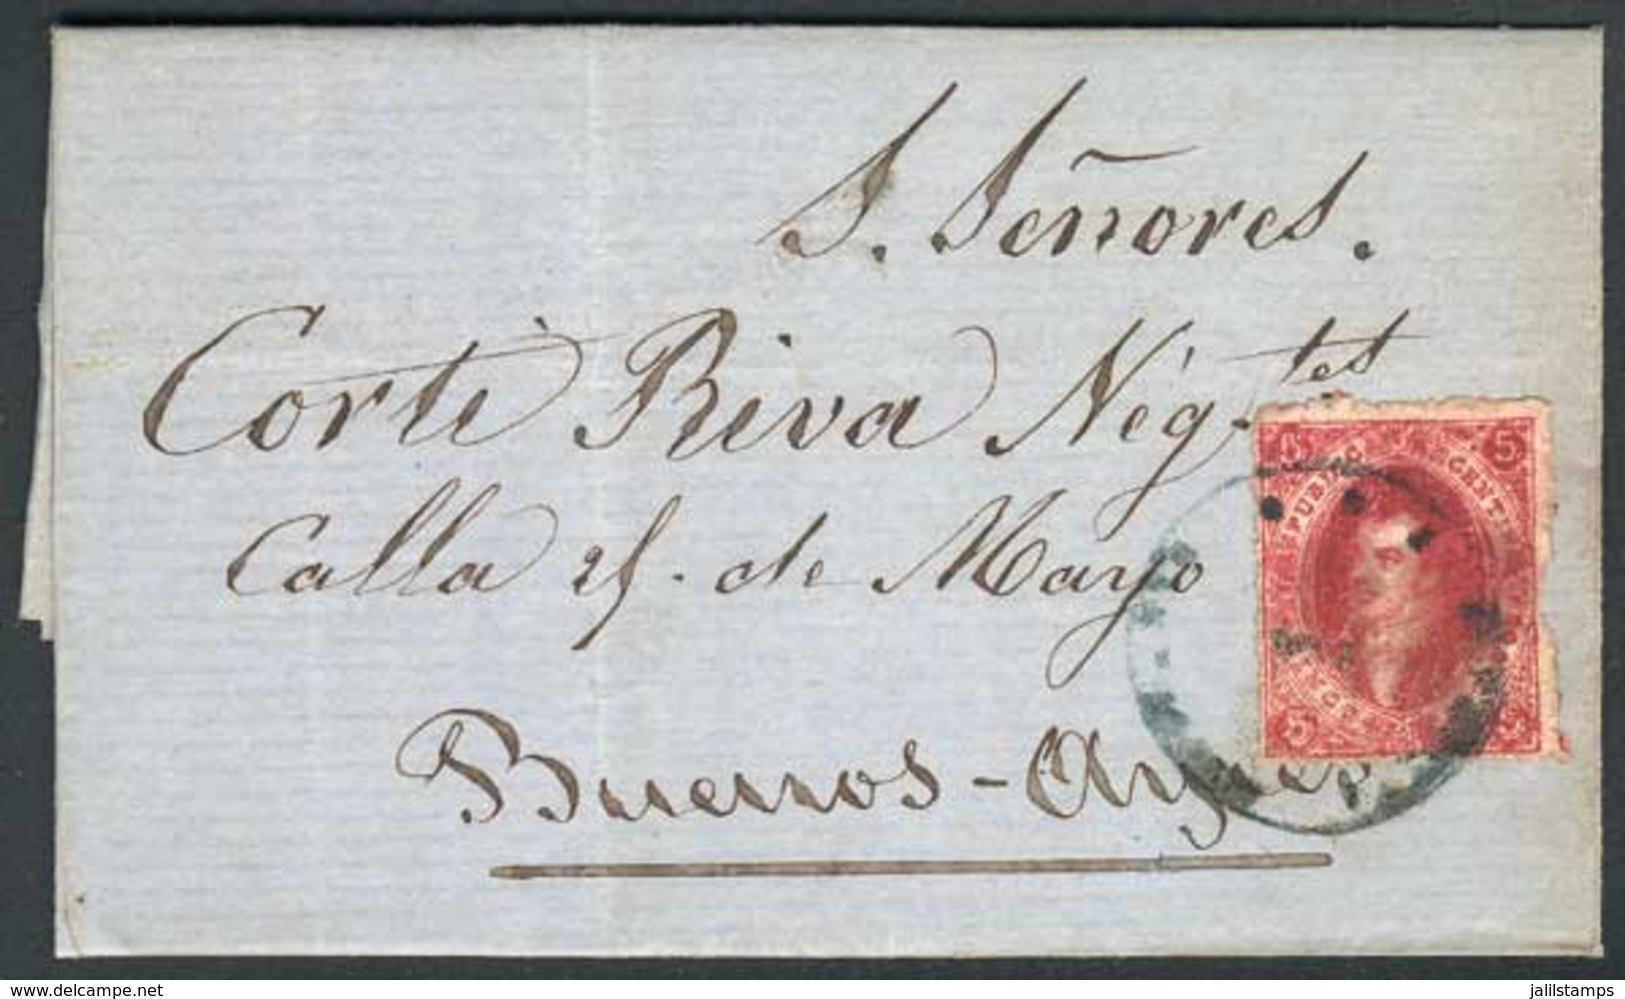 S. Señores.
Corti Riva Nég.tes
Calla 25. de Mayo
Buenos-Ayres
5 5
REPUBLICA ARGENTINA
CENTAVOS
5 5
www.delcampe.net
jalilstamps